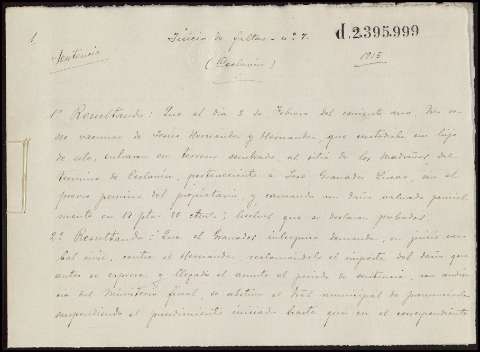 1
Juicio de faltas - nº 7.
d.2395.999
Sentencia
(Ceclavin)
1915
1º Resultando: Que el dia 2 de Febrero del corriente ano,
vacunas de Jesús Hernandez y Hernandez, que custodiaba un hijo
de este, entraron en terreno sembrado al sitio de los del
termino de Ceclavin, perteneciente a José Granados sin el
previo permiso del propietario y causando un daño valuado pericial
mente en 18 ptas. Hechos que se declaran probados.
2º Resultando: Que el Granados interpuso demanda, en juicio ver
bal civil, contra el Hernandez, reclamándole el importe del daño que
antes se expresa y llegado el asunto al periodo de sentencia, con audien
cia del Ministerio fiscal, se abstuvo el Tral. municipal de pronunciarla
suspendiendo el procedimiento incoado hasta que en el correspondiente